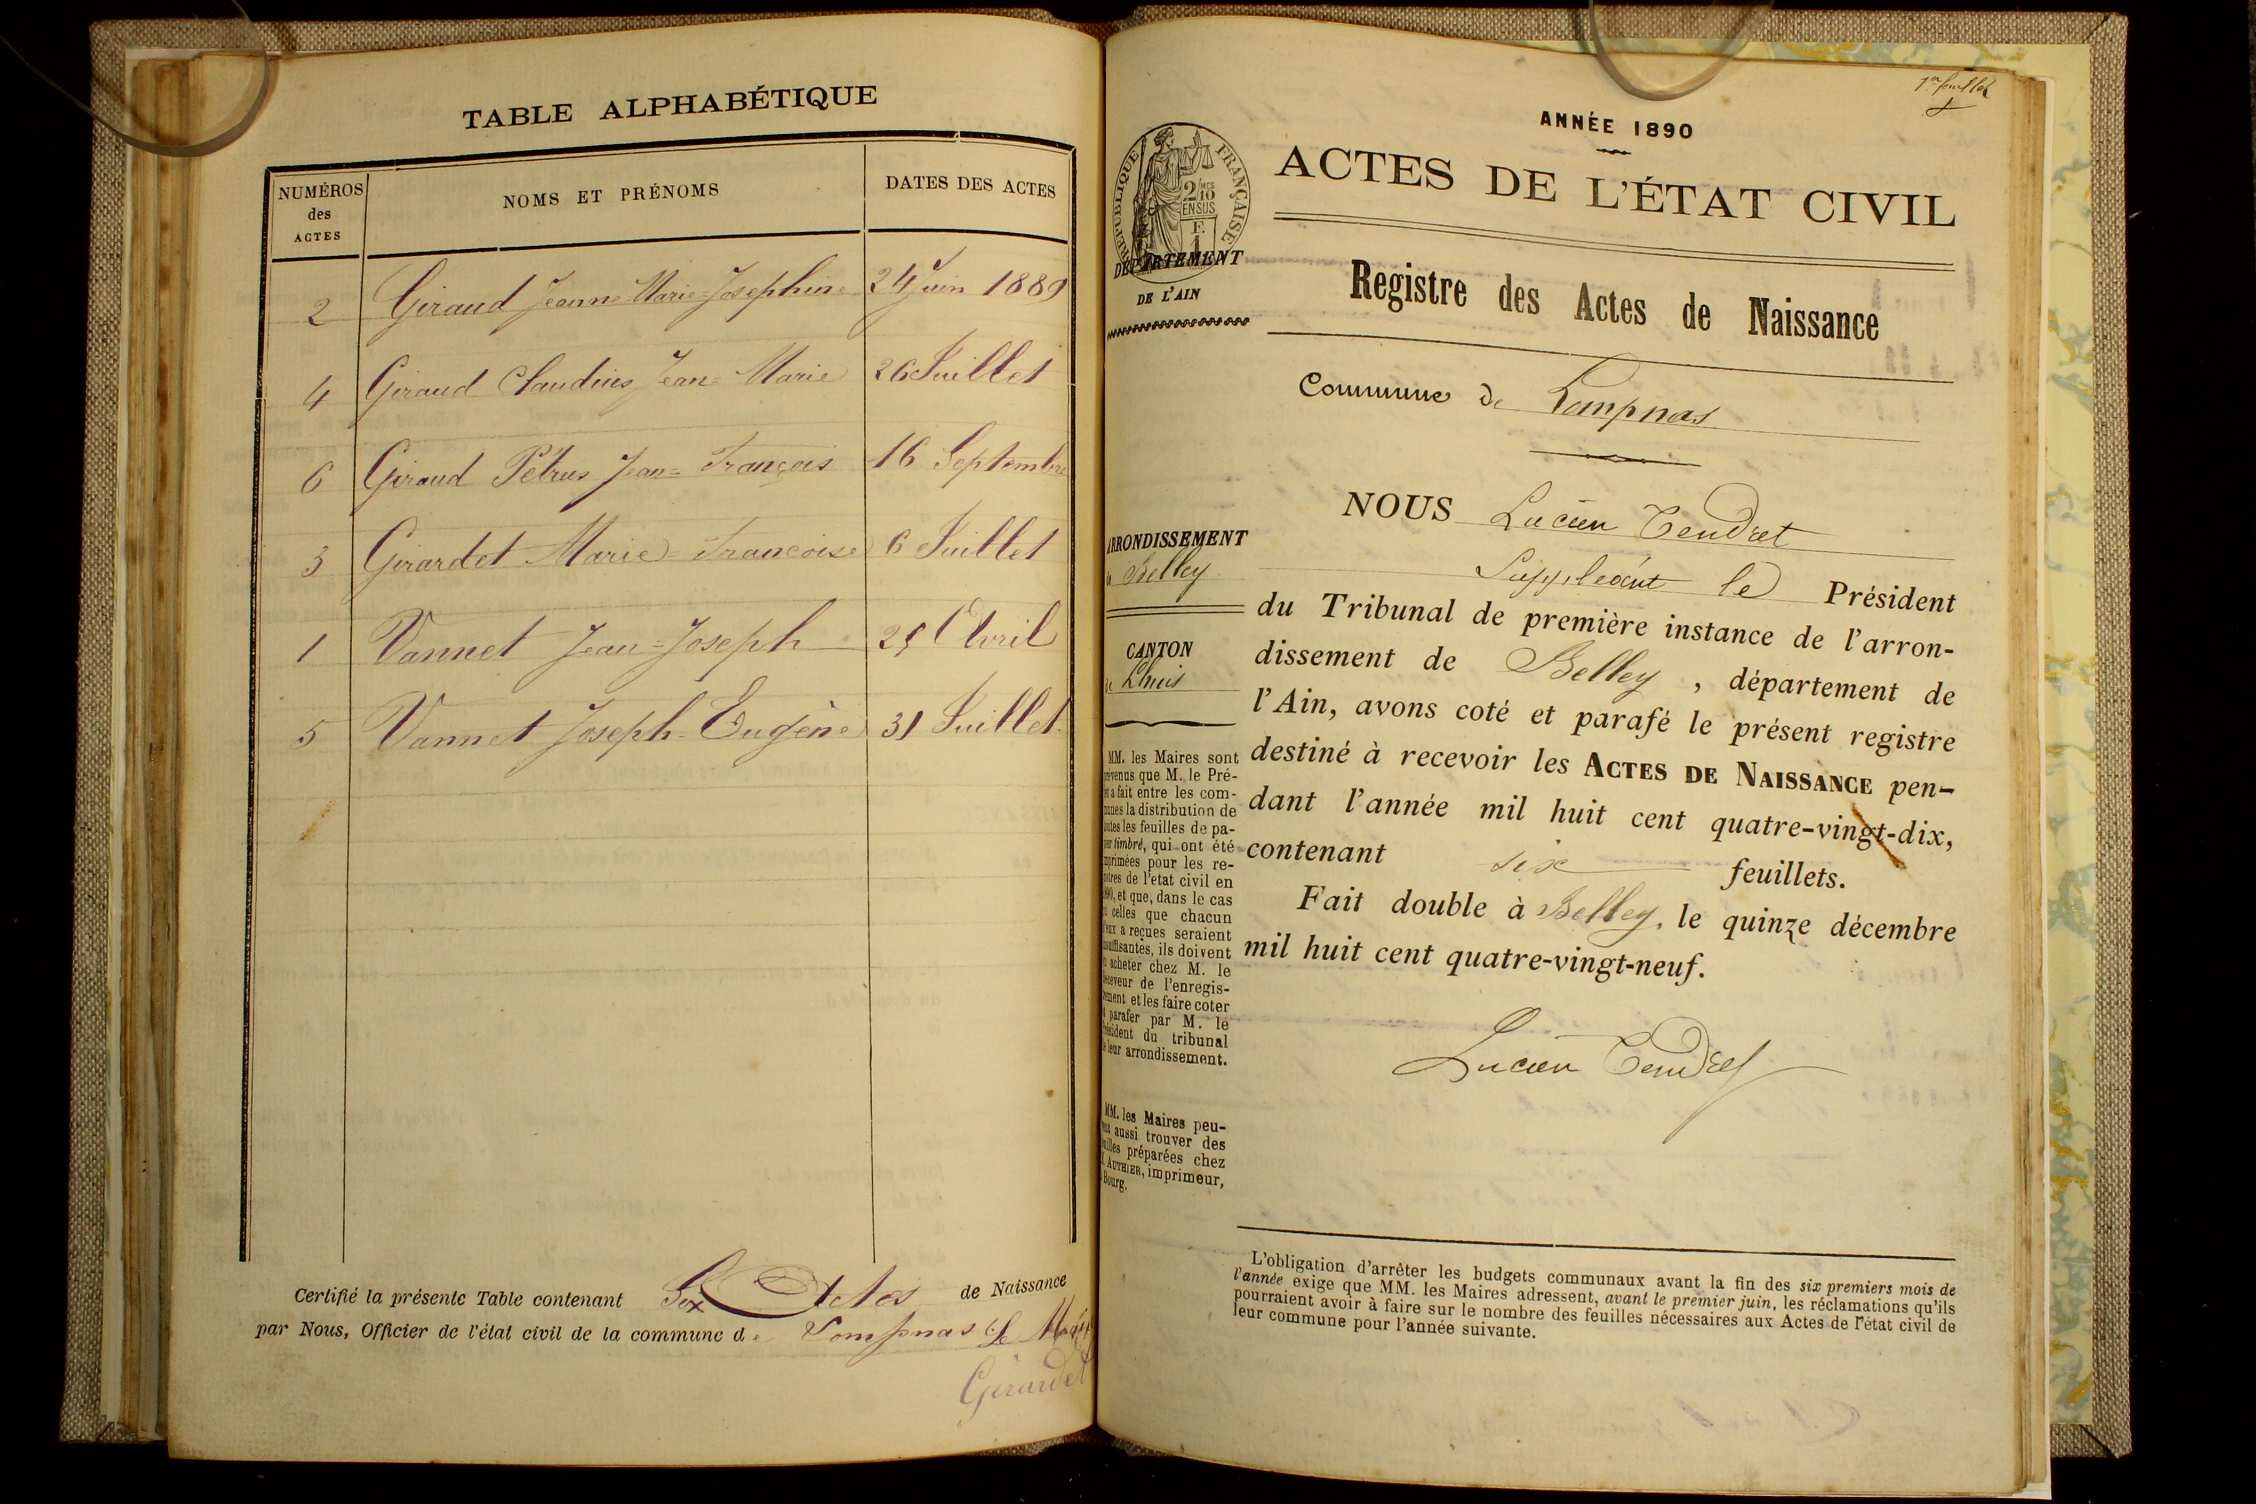 TABLE ALPHABÉTIQUE
NUMÉROS des ACTES
NOMS ET PRÉNOMS
DATES DES ACTES
2 Giraud Jeanne Marie=Josephine 24 Juin 1889
4 Giraud Claudius Jean=Marie 26 Juillet
6 Giraud Pétrus Jean=François 16 Septembre
3 Girardet Marie=Francoise 6 Juillet
1 Vannet Jean=Joseph Avril
5 Vannet Joseph=Eugène 31 Juillet
Certifié la présente Table contenant Six Actes de Naissance
par Nous, Officier de l'état civil de la commune de Lompnas Le
Girardet
1er feuillet
ANNÉE 1890
RÉPUBLIQUE FRANÇAISE
2/10 EN SUS
ACTES DE L'ÉTAT CIVIL
DÉPARTEMENT
DE L'AIN
Registre des Actes de Naissance
Commune de Lompnas
ARRONDISSEMENT
de Belley
CANTON
de Lhuis
MM. les Maires sont
prévenus que M. le Pré-
fet a fait entre les com-
munes la distribution de
toutes les feuilles de pa-
pier timbré, qui ont été
imprimées pour les re-
gistres de l'état civil en
1890, et que, dans le cas
où celles que chacun
d'eux a reçues seraient
insuffisantes, ils doivent
en acheter chez M. le
Receveur de l'enregis-
trement et les faire coter
et parafer par M. le
Président du tribunal
de leur arrondissement.
MM. les Maires peu-
vent aussi trouver des
feuilles préparées chez
M. AUTHIER, imprimeur,
à Bourg.
NOUS Lucien Tendret
Suppléant le Président
du Tribunal de première instance de l'arron-
dissement de Belley, département de
l'Ain, avons coté et parafé le présent registre
destiné à recevoir les ACTES DE NAISSANCE pen-
dant l'année mil huit cent quatre-vingt-dix,
contenant six feuillets.
Fait double à Belley, le quinze décembre
mil huit cent quatre-vingt-neuf.
Lucien Tendret
L'obligation d'arrêter les budgets communaux avant la fin des six premiers mois de
l'année exige que MM. les Maires adressent, avant le premier juin, les réclamations qu'ils
pourraient avoir à faire sur le nombre des feuilles nécessaires aux Actes de l'état civil de
leur commune pour l'année suivante.